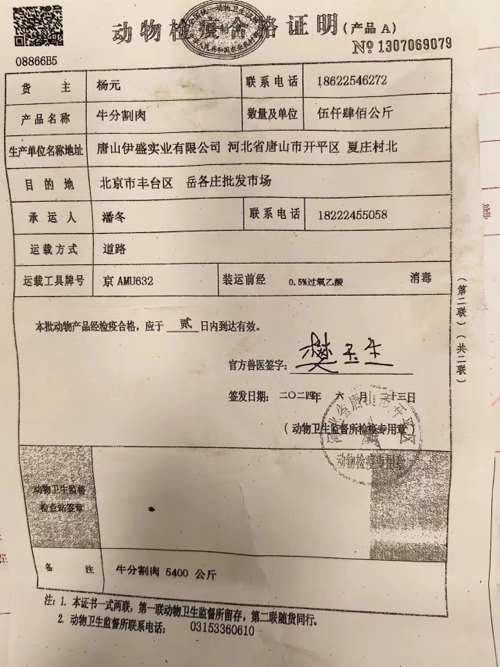 动物检疫合格证明(产品 A)
08866B5
№ 1307069079
货主 杨元 联系电话 18622546272
产品名称 牛分割肉 数量及单位 伍仟肆佰公斤
生产单位名称地址 唐山伊盛实业有限公司 河北省唐山市开平区 夏庄村北
目的地 北京市丰台区 岳各庄批发市场
承运人 潘冬 联系电话 18222455058
运载方式 道路
运载工具牌号 京 AMU632 装运前经 0.5%过氧乙酸 消毒
本批动物产品经检疫合格，应于 贰 日内到达有效。
官方兽医签字：
签发日期：二〇二四年 六 月 二十三日
(动物卫生监督所检疫专用章)
动物检疫专用章
(第二联)(共二联)
动物卫生监督
检查站签章
备注 牛分割肉 5400 公斤
注：1. 本证书一式两联，第一联动物卫生监督所留存，第二联随货同行。
2. 动物卫生监督所联系电话： 03153360610